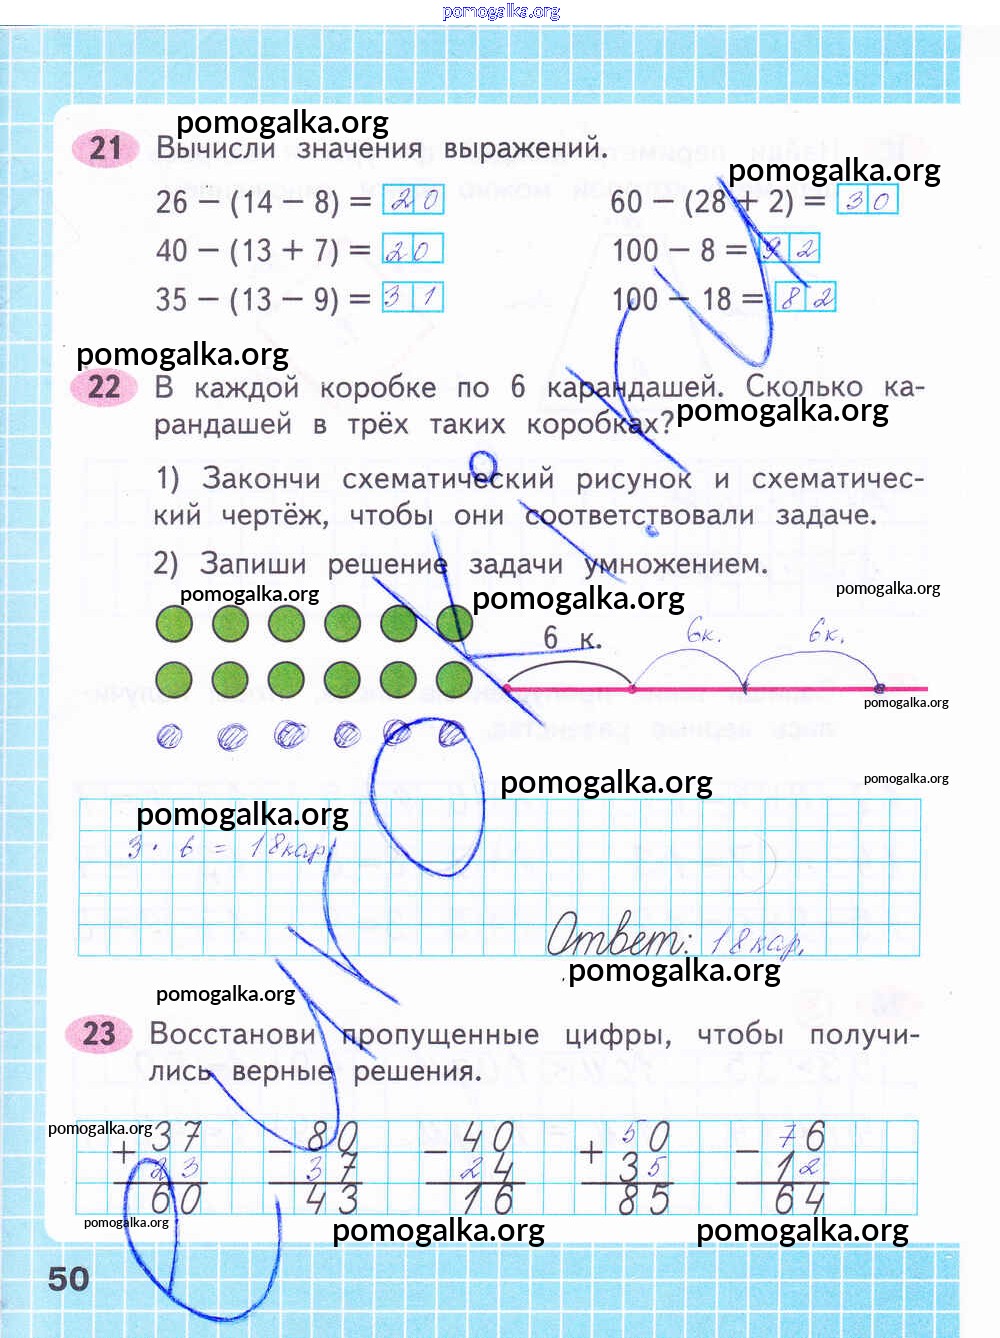 pomogalka.org
pomogalka.org
21 Вычисли значения выражений.
pomogalka.org
26 − (14 − 8) = 20
60 − (28 + 2) = 30
40 − (13 + 7) = 20
100 − 8 = 92
35 − (13 − 9) = 31
100 − 18 = 82
pomogalka.org
22 В каждой коробке по 6 карандашей. Сколько ка-
pomogalka.org
рандашей в трёх таких коробках?
1) Закончи схематический рисунок и схематичес-
кий чертёж, чтобы они соответствовали задаче.
2) Запиши решение задачи умножением.
pomogalka.org
pomogalka.org
pomogalka.org
6 к. 6к. 6к.
pomogalka.org
pomogalka.org
pomogalka.org
pomogalka.org
3 · 6 = 18кар.
Ответ: 18кар.
pomogalka.org
pomogalka.org
23 Восстанови пропущенные цифры, чтобы получи-
лись верные решения.
pomogalka.org
+ 37 − 80 − 40 + 50 − 76
23 37 24 35 12
60 43 16 85 64
pomogalka.org
pomogalka.org
pomogalka.org
50